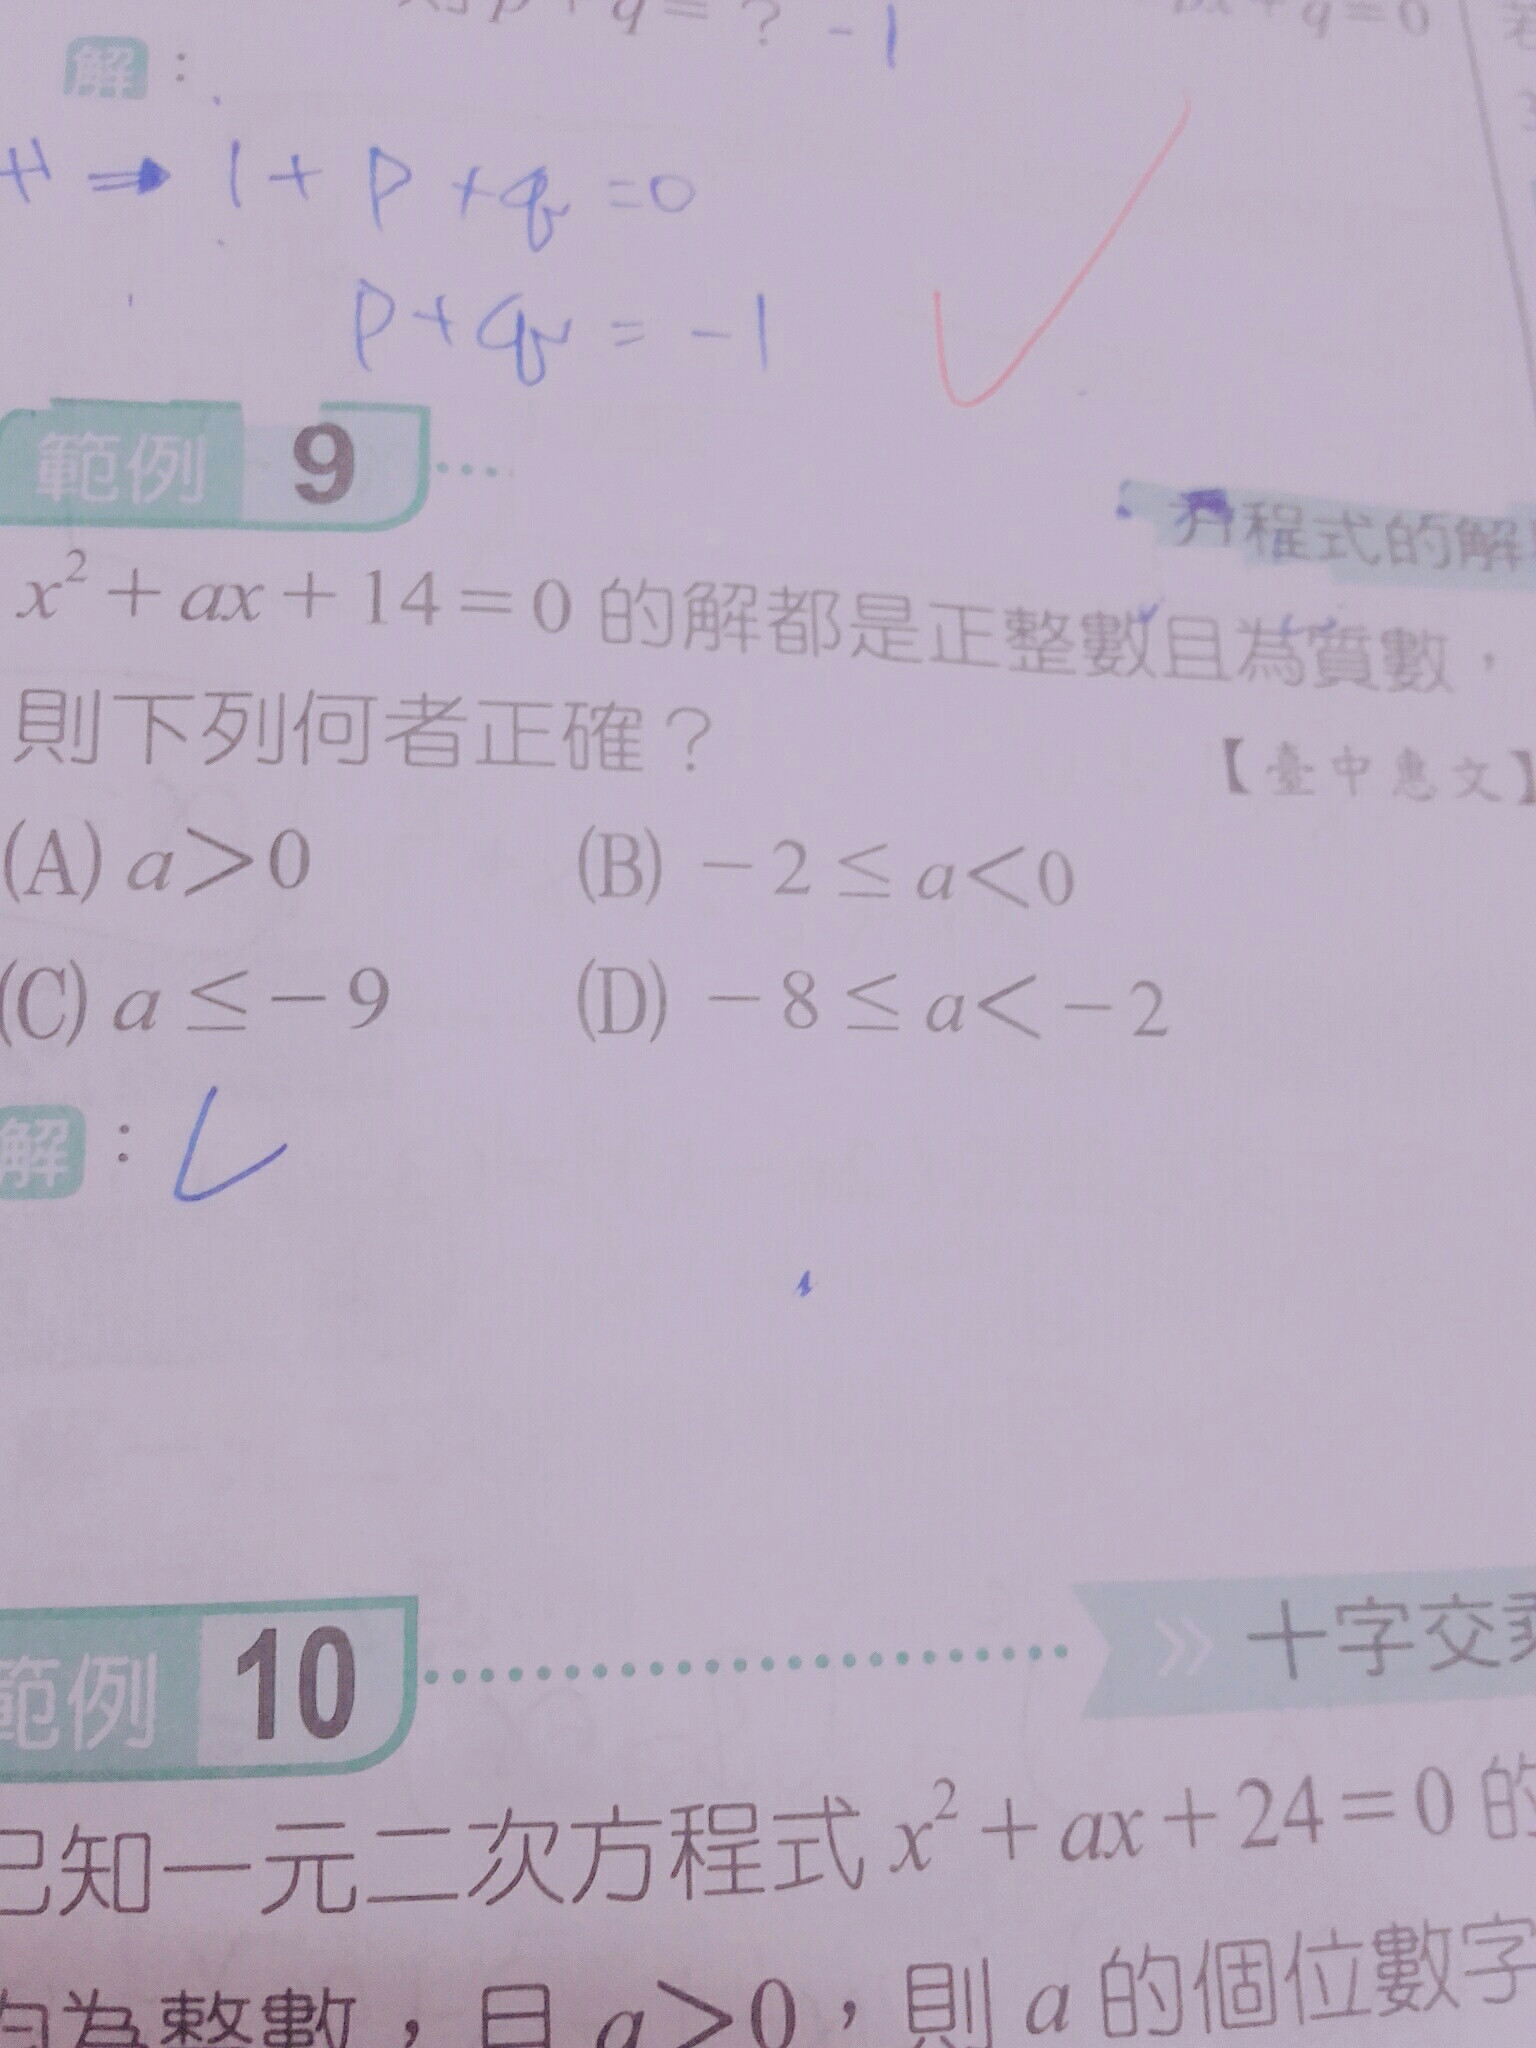 p + q = ? -1
解：
⇒ 1 + p + q = 0
p + q = -1
範例 9
方程式的解
x² + ax + 14 = 0 的解都是正整數且為質數，
則下列何者正確？
【臺中惠文】
(A) a > 0 (B) －2 ≤ a < 0
(C) a ≤ －9 (D) －8 ≤ a < －2
解：
範例 10
» 十字交乘
已知一元二次方程式 x² + ax + 24 = 0 的
均為整數，且 a > 0，則 a 的個位數字